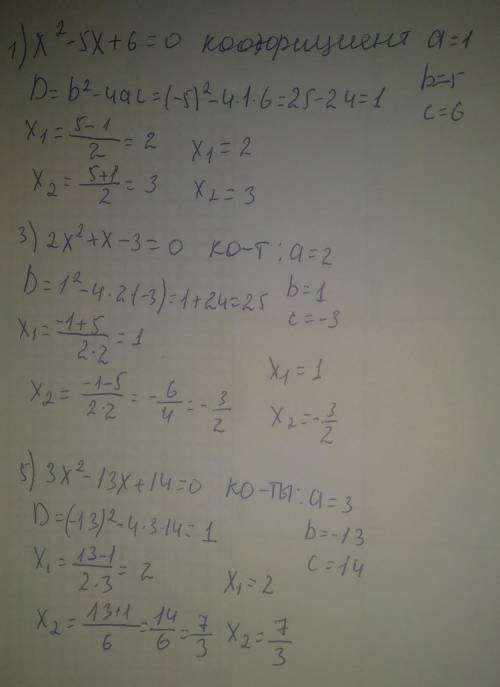 1) x² - 5x + 6 = 0 коэффициент a = 1
D = b² - 4ac = (-5)² - 4·1·6 = 25 - 24 = 1 b = -5
c = 6
x₁ = (5-1)/2 = 2 x₁ = 2
x₂ = (5+1)/2 = 3 x₂ = 3
3) 2x² + x - 3 = 0 ко-т: a = 2
D = 1² - 4·2(-3) = 1 + 24 = 25 b = 1
c = -3
x₁ = (-1+5)/(2·2) = 1 x₁ = 1
x₂ = (-1-5)/(2·2) = -6/4 = -3/2 x₂ = -3/2
5) 3x² - 13x + 14 = 0 ко-ты: a = 3
D = (-13)² - 4·3·14 = 1 b = -13
c = 14
x₁ = (13-1)/(2·3) = 2 x₁ = 2
x₂ = (13+1)/6 = 14/6 = 7/3 x₂ = 7/3